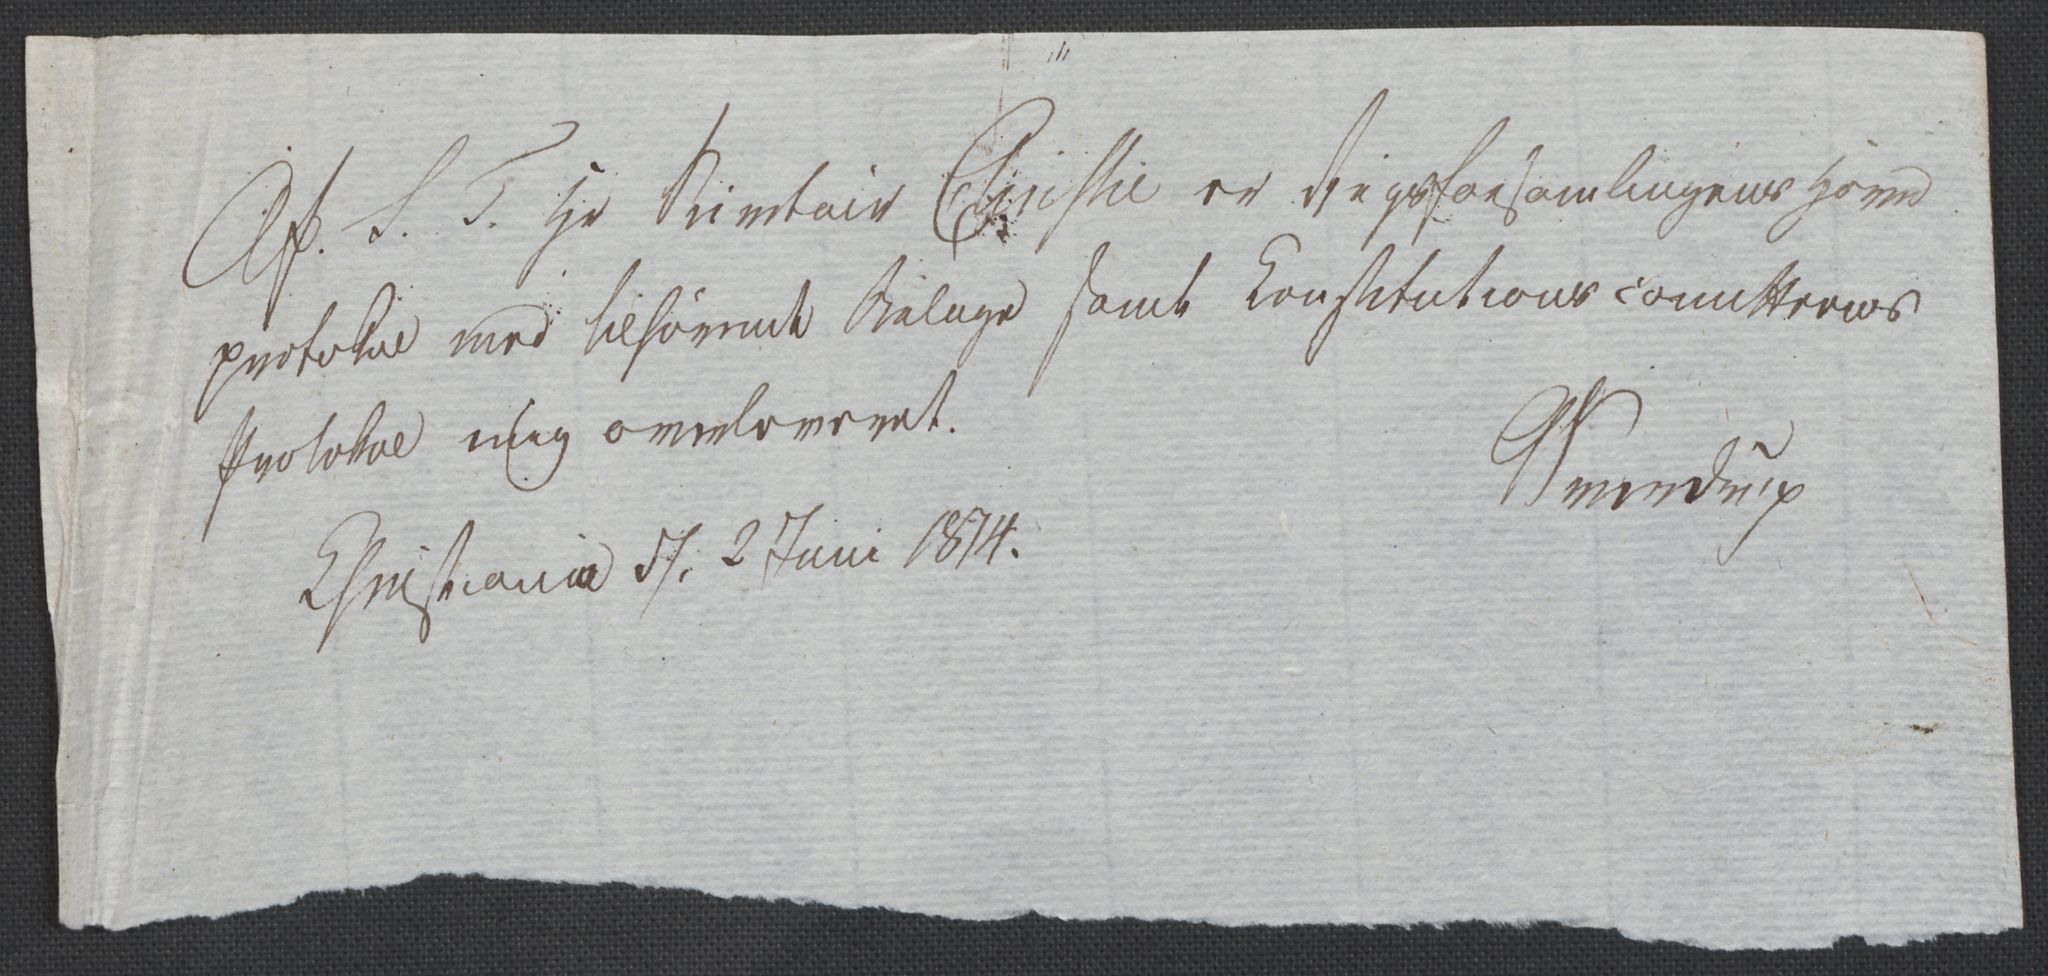 Af S. T. Hr Secretair Christie er Rigsforsamlingens Hoved
protokol med tilhörende Bilage samt Constitutionscomitteens
Protokol mig overleveret.
Christiania d. 2 Juni 1814.